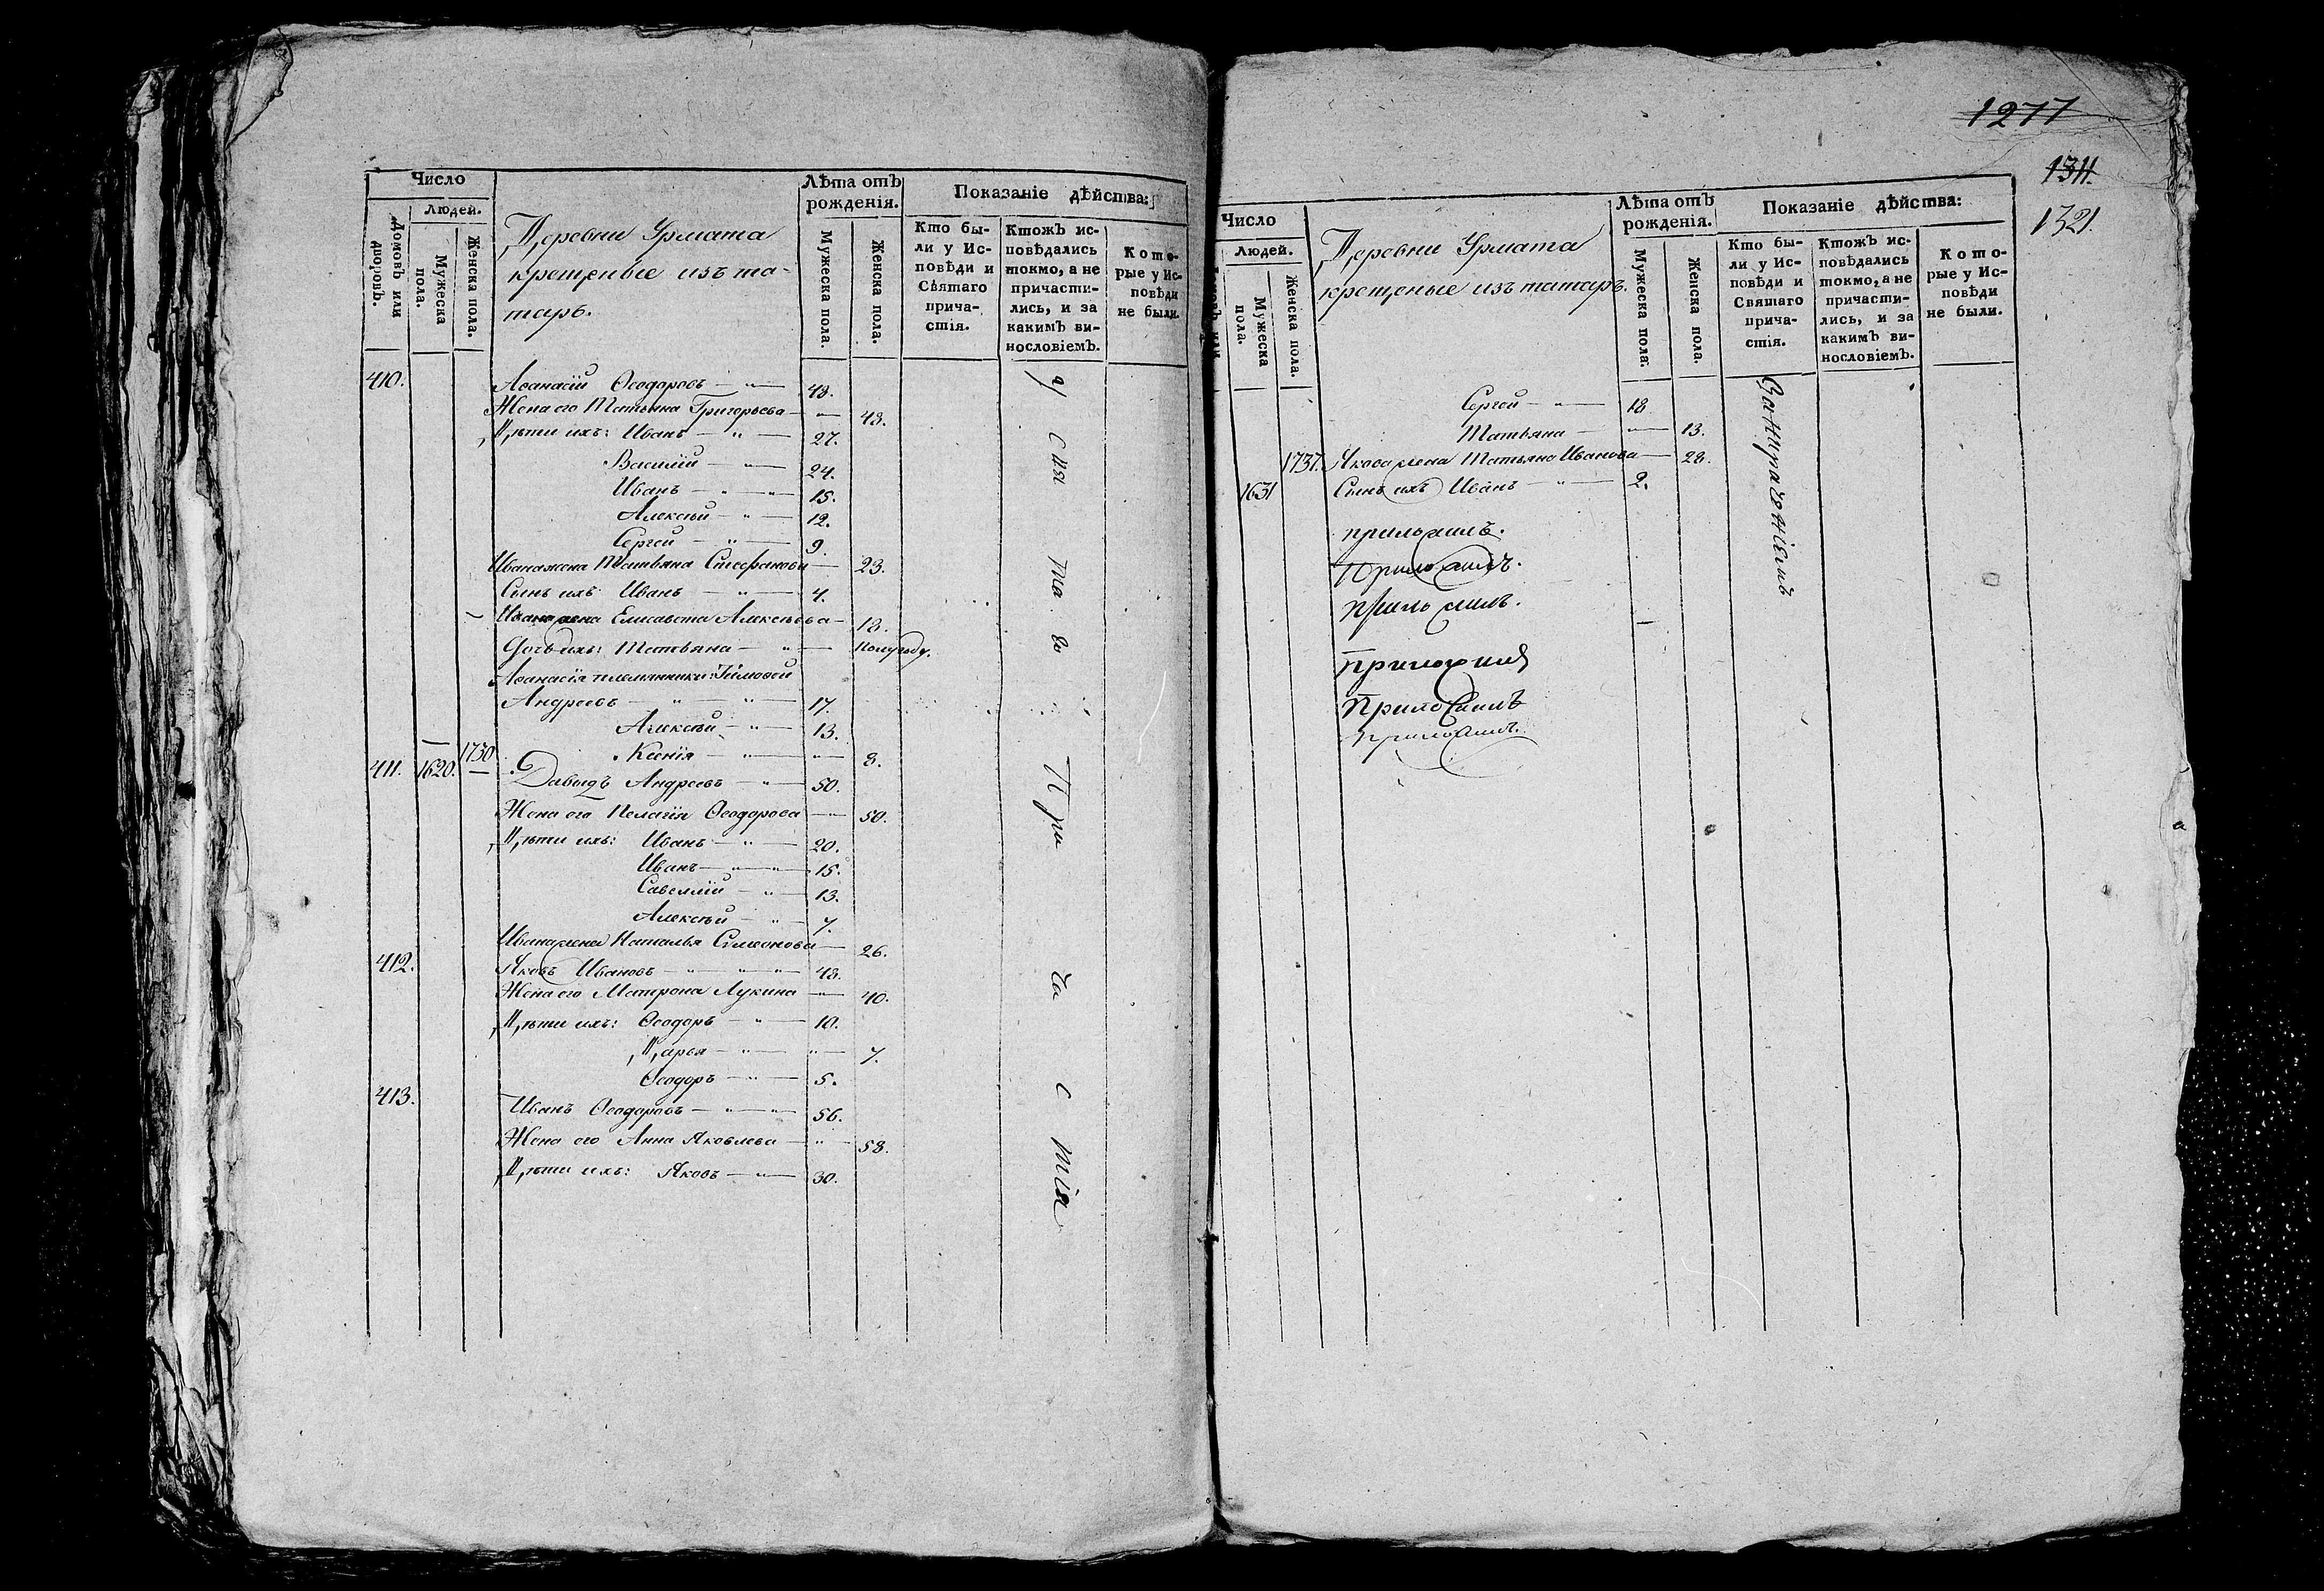 Число
Людей.
Домовъ или дворовъ.
Мужеска пола.
Женска пола.
Деревни Урмата
крещеные изъ та-
таръ.
Лѣта отъ
рожденія.
Мужеска пола.
Женска пола.
Показаніе дѣйства:
Кто бы-
ли у Ис-
повѣди и
Святаго
прича-
стія.
Ктожъ ис-
повѣдались
токмо, а не
причасти-
лись, и за
какимъ ви-
нословіемъ.
Кото-
рые у Ис-
повѣди
не были.
410. Аѳанасій Ѳеодоровъ — " — 48.
Жена его Татьяна Григорьева — " — 48.
Дѣти ихъ: Иванъ — " — 27.
Василій — " — 24.
Иванъ — " — " — 15.
Алексѣй — " — 12.
Сергей — " — 9.
Ивана жена Татьяна Стефанова — 23.
Сынъ ихъ Иванъ — " — 4.
Ивана жена Елисавета Алексѣева — 18.
Дочь ихъ: Татьяна — " — полугоду.
Аѳанасія племянники: Тимофей
Андреевъ — " — " — 17.
Алексѣй — " — 13.
1730 Ксенія — " — " — 8.
411. 1620. Давыдъ Андреевъ — " — 50.
Жена его Пелагія Ѳеодорова — " — 50.
Дѣти ихъ: Иванъ — " — 20.
Иванъ — " — " — 15.
Савелій — " — 13.
Алексѣй — " — 7.
Ивана жена Наталья Симеонова — 26.
412. Яковъ Ивановъ — " — " — " — 48.
Жена его Матрона Лукина — " — 40.
Дѣти ихъ: Ѳеодоръ — " — 10.
Дарья — " — " — 7.
Ѳеодоръ — " — 5.
413. Иванъ Ѳеодоровъ — " — " — 56.
Жена его Анна Яковлева — " — 58.
Дѣти ихъ: Яковъ — " — 30.
у Свята го При ча с тія
1277
1311.
1321.
Число
Людей.
Мужеска пола.
Женска пола.
Деревни Урмата
крещеные изъ татаръ.
Лѣта отъ
рожденія.
Мужеска пола.
Женска пола.
Показаніе дѣйства:
Кто бы-
ли у Ис-
повѣди и
Святаго
прича-
стія.
Ктожъ ис-
повѣдались
токмо, а не
причасти-
лись, и за
какимъ ви-
нословіемъ.
Кото-
рые у Ис-
повѣди
не были.
Сергей — " — 18
Татьяна — " — 13.
1737. Якова жена Татьяна Иванова — 28.
1631 Сынъ ихъ Иванъ — " — 2.
приложилъ.
Приложилъ.
приложилъ.
Приложилъ
Приложилъ
приложилъ.